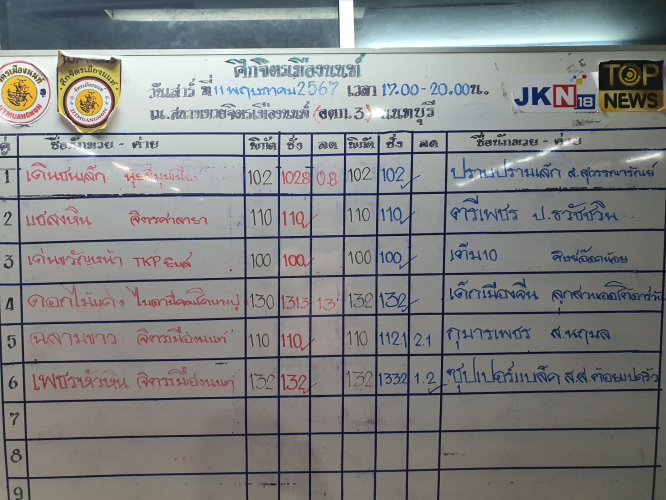 ศึกจิตรเมืองนนท์
วันเสาร์ ที่ 11 พฤษภาคม 2567 เวลา 17.00-20.00น.
ณ.สนามมวยจิตรเมืองนนท์ (อตก.3) นนทบุรี
JKN18
TOP NEWS
JITMUANGNON
คู่ ชื่อนักมวย - ค่าย พิกัด ชั่ง ลด พิกัด ชั่ง ลด ชื่อนักมวย - ค่าย
1 เดินชนเล็ก 102 102.8 0.8 102 102 ปราบปรามเล็ก ส.สุวรรณารัณย์
2 แซลงหิน จิตรศาลายา 110 110 110 110 ตรีเพชร ป.ธวัชชวิน
3 เด่นขวัญหน้า TKP ยิมส์ 100 100 100 100 เต็ม10
4 ดอกไม้แดง 130 131.3 1.3 132 132 เด็กเมืองจีน
5 ฉลามขาว จิตรเมืองนนท์ 110 110 110 112.1 2.1 กุมารเพชร ส.นฤมล
6 เพชรหัวหิน จิตรเมืองนนท์ 132 132 132 133.2 1.2 ซุปเปอร์แบล็ค ส.ส.ต้อยแปดริ้ว
7
8
9